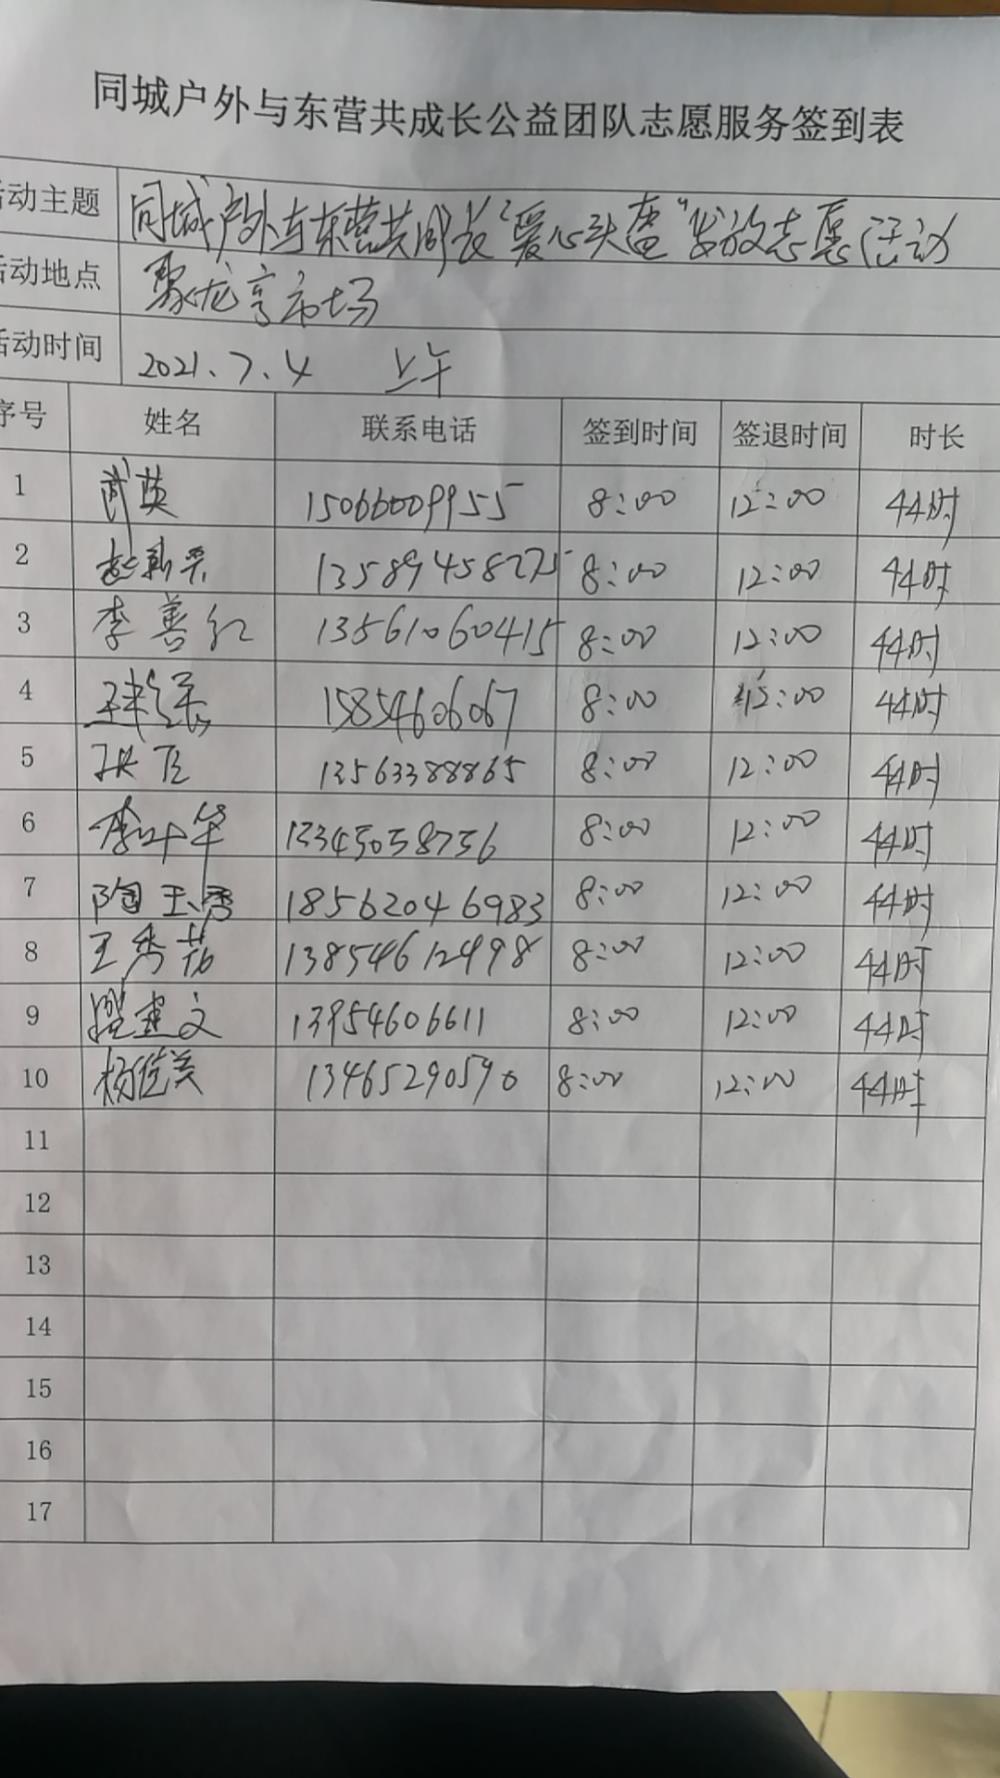 同城户外与东营共成长公益团队志愿服务签到表
活动主题 同城户外与东营共成长"爱心头盔"发放志愿活动
活动地点 聚龙亨市场
活动时间 2021.7.4 上午
序号 姓名 联系电话 签到时间 签退时间 时长
1 武英 15066009955 8:00 12:00 4小时
2 赵新荣 13589458275 8:00 12:00 4小时
3 李善红 13561060415 8:00 12:00 4小时
4 15854606067 8:00 12:00 4小时
5 13563388865 8:00 12:00 4小时
6 李叶华 13345058756 8:00 12:00 4小时
7 陶玉秀 18562046983 8:00 12:00 4小时
8 王秀茹 13854612498 8:00 12:00 4小时
9 建文 13954606611 8:00 12:00 4小时
10 杨俊美 13465290590 8:00 12:00 4小时
11
12
13
14
15
16
17